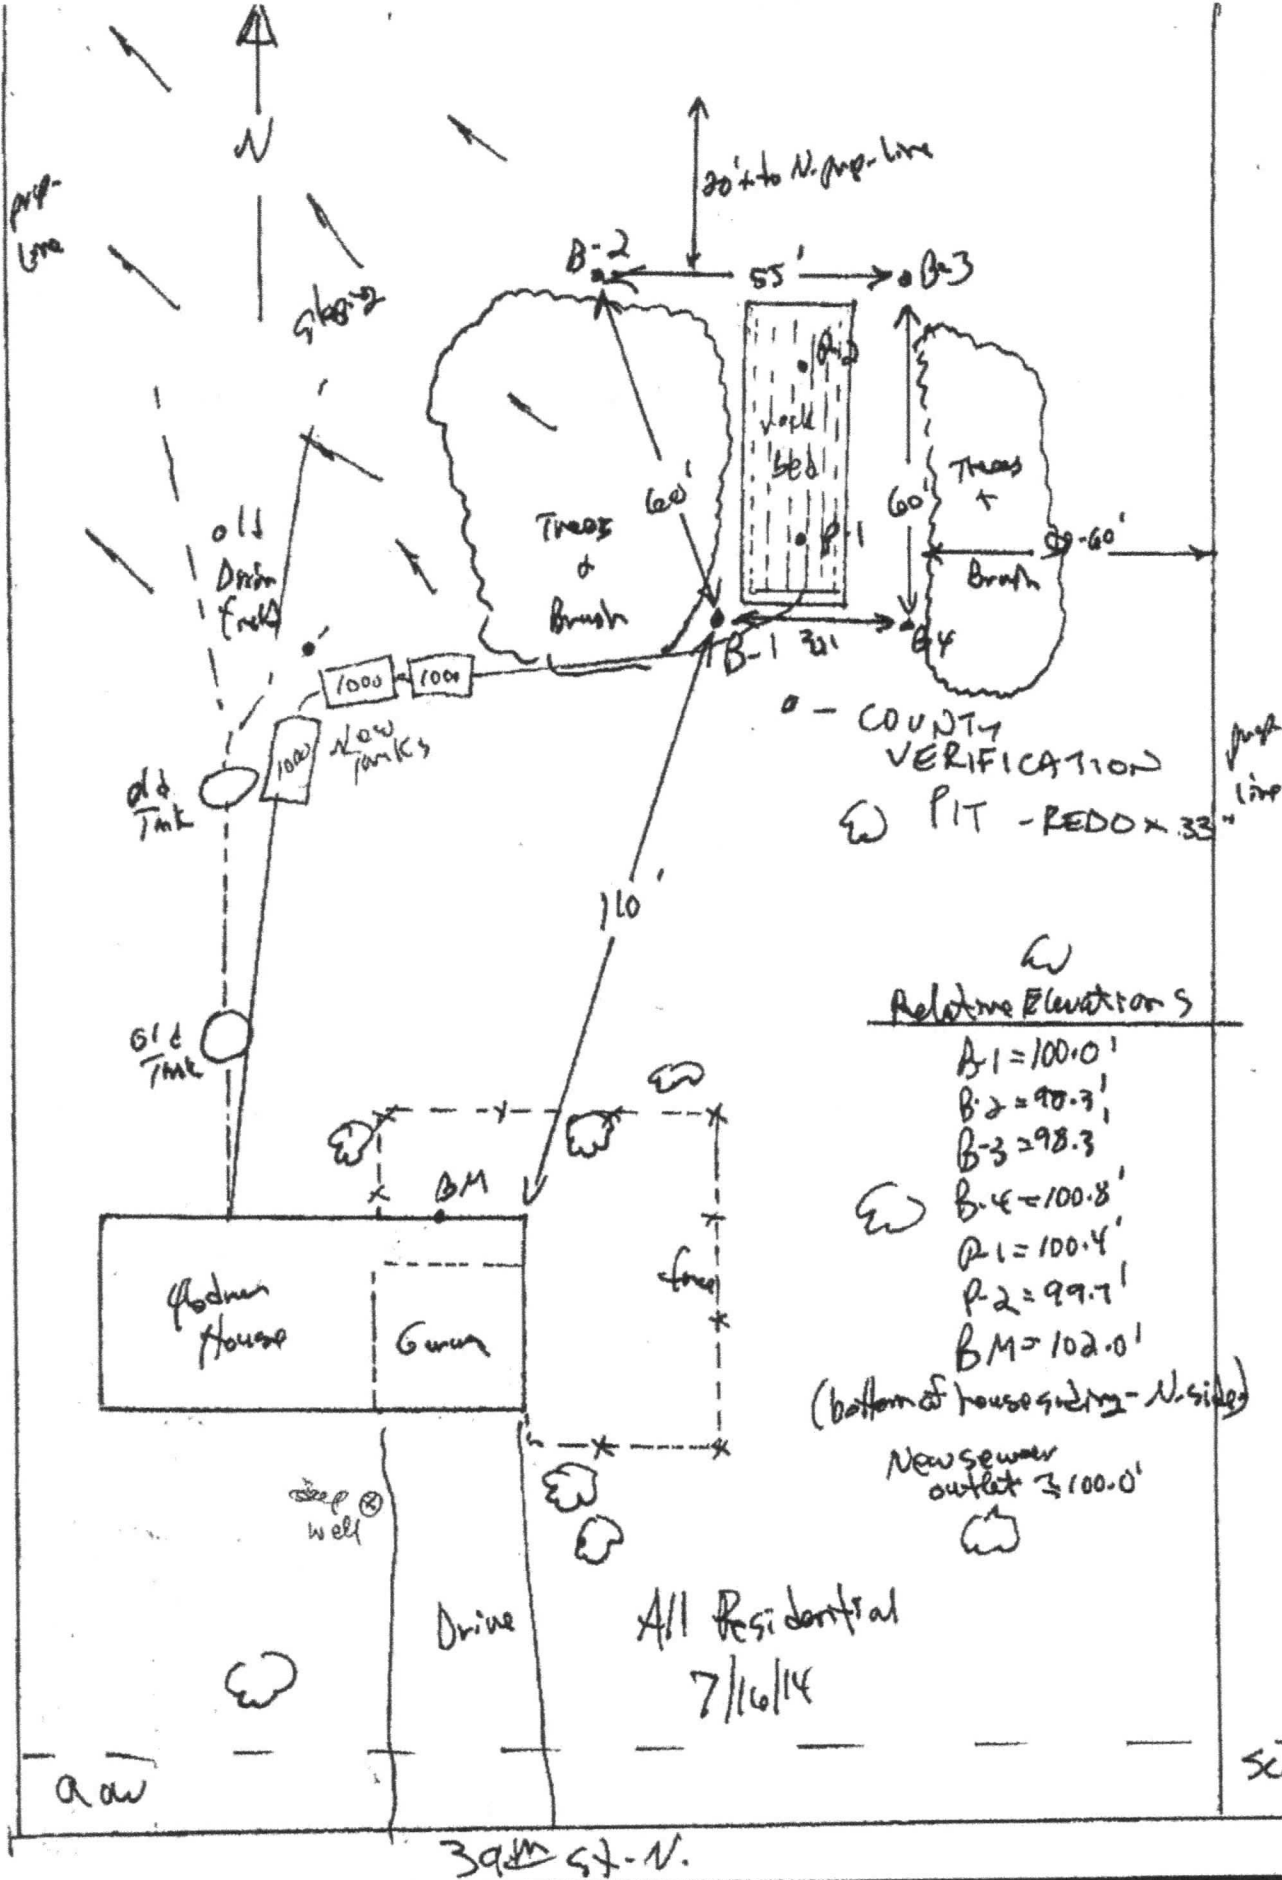 N
20'+ to N. prop. line
prop-
line
B-2
55'
B-3
P-2
rock
bed
60'
60'
Trees
+
Brush
Trees
&
Brush
P-1
old
Drain
field
B-1
B-4
1000
1000
1000
New
Tanks
old
Tank
- COUNTY
VERIFICATION
PIT - REDOX 33"
prop
line
110'
old
Tank
Relative Elevations
B-1 = 100.0'
B-2 = 98.3'
B-3 = 98.3'
B-4 = 100.8'
P-1 = 100.4'
P-2 = 99.7'
BM = 102.0'
(bottom of house siding - N. side)
New sewer
outlet ≥ 100.0'
BM
fence
House
deep
well
Drive
All Residential
7/16/14
39th St. N.